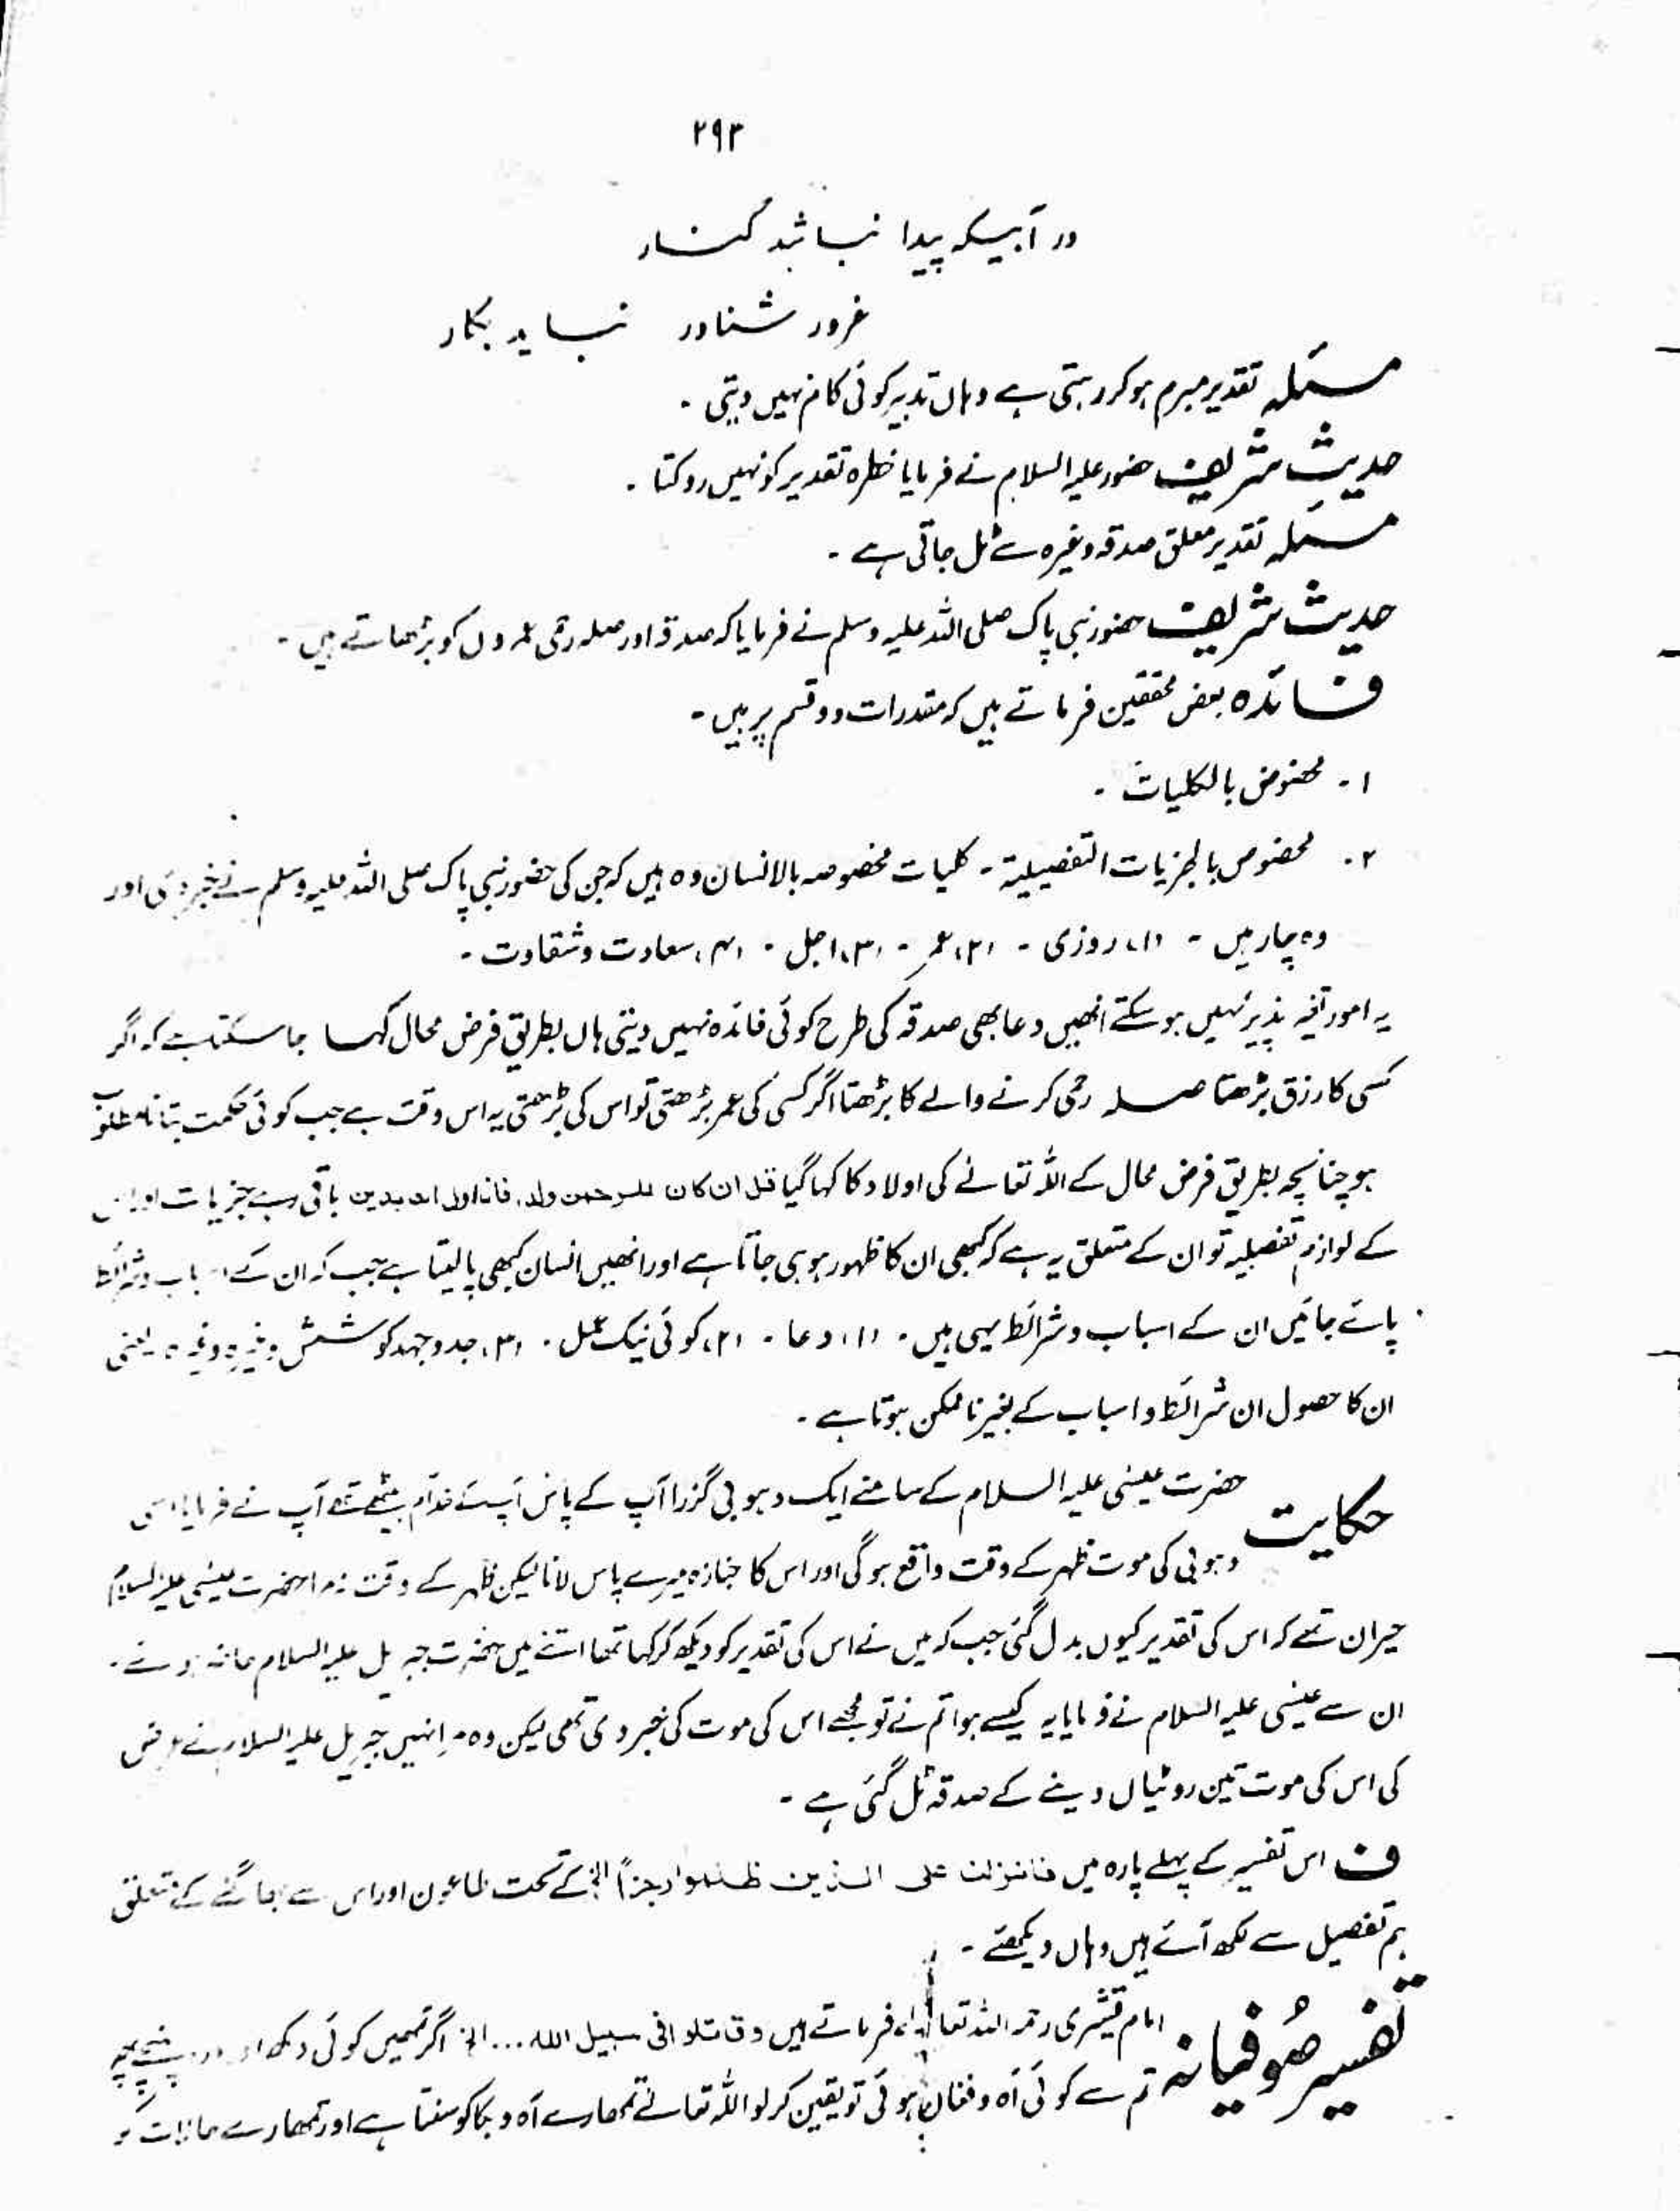 ۲۹۳
در آبیکہ پیدا نباشد کنار
غرور شناور نباید بکار
مسئلہ تقدیر مبرم ہو کر رہتی ہے وہاں تدبیر کوئی کام نہیں دیتی ۔
حدیث شریف حضور علیہ السلام نے فرمایا خطرہ تقدیر کو نہیں روکتا ۔
مسئلہ تقدیر معلق صدقہ وغیرہ سے ٹل جاتی ہے ۔
حدیث شریف حضور نبی پاک صلی اللہ علیہ وسلم نے فرمایا کہ صدقہ اور صلہ رحمی عمروں کو بڑھاتے ہیں ۔
فائدہ بعض محققین فرماتے ہیں کہ مقدرات دو قسم پر ہیں ۔
۱ ۔ مخصوص بالکلیات ۔
۲ ۔ مخصوص بالجزیات التفصیلیۃ ۔ کلیات مخصوصہ بالانسان وہ ہیں کہ جن کی حضور نبی پاک صلی اللہ علیہ وسلم نے خبر دی اور
وہ چار ہیں ۔ (۱) روزی ۔ (۲) عمر ۔ (۳) اجل ۔ (۴) سعادت و شقاوت ۔
یہ امور تغیر پذیر نہیں ہو سکتے انھیں دعا بھی صدقہ کی طرح کوئی فائدہ نہیں دیتی ہاں بطریق فرض محال کہا جا سکتا ہے کہ اگر
کسی کا رزق بڑھتا صلہ رحمی کرنے والے کا بڑھتا اگر کسی کی عمر بڑھتی تو اس کی بڑھتی یہ اس وقت ہے جب کوئی حکمت بتانا مطلوب
ہو چنانچہ بطریق فرض محال کے اللہ تعالٰے کی اولاد کا کہا گیا قل ان کان للرحمن ولد فانا اول العابدین باقی رہے جزیات اور اس
کے لوازم تفصیلیہ تو ان کے متعلق یہ ہے کہ کبھی ان کا ظہور ہو ہی جاتا ہے اور انھیں انسان کبھی پا لیتا ہے جب کہ ان کے اسباب و شرائط
پائے جائیں ان کے اسباب و شرائط یہی ہیں ۔ (۱) دعا ۔ (۲) کوئی نیک عمل ۔ (۳) جدوجہد کوشش وغیرہ وغیرہ یعنی
ان کا حصول ان شرائط و اسباب کے بغیر ناممکن ہوتا ہے ۔
حکایت حضرت عیسٰی علیہ السلام کے سامنے ایک دھوبی گزرا آپ کے پاس آپ کے خدام بیٹھے تھے آپ نے فرمایا اس
دھوبی کی موت ظہر کے وقت واقع ہوگی اور اس کا جنازہ میرے پاس لانا لیکن ظہر کے وقت نہ مرا حضرت عیسٰی علیہ السلام
حیران تھے کہ اس کی تقدیر کیوں بدل گئی جب کہ میں نے اس کی تقدیر کو دیکھ کر کہا تھا اتنے میں حضرت جبریل علیہ السلام حاضر ہوئے ۔
ان سے عیسٰی علیہ السلام نے فرمایا یہ کیسے ہوا تم نے تو مجھے اس کی موت کی خبر دی تھی لیکن وہ مرا نہیں جبریل علیہ السلام نے عرض
کی اس کی موت تین روٹیاں دینے کے صدقہ ٹل گئی ہے ۔
ف اس تفسیر کے پہلے پارہ میں فانزلنا علی الذین ظلموا رجزاً الخ کے تحت طاعون اور اس سے بھاگنے کے متعلق
ہم تفصیل سے لکھ آئے ہیں وہاں دیکھئے ۔
تفسیر صُوفیانہ امام قشیری رحمہ اللہ تعالٰی فرماتے ہیں وقاتلوا فی سبیل اللہ ... الخ اگر تمہیں کوئی دکھ اور درد پہنچے
تم سے کوئی آہ و فغاں ہوئی تو یقین کر لو اللہ تعالٰے تمھارے آہ و بکا کو سنتا ہے اور تمھارے حالات کو